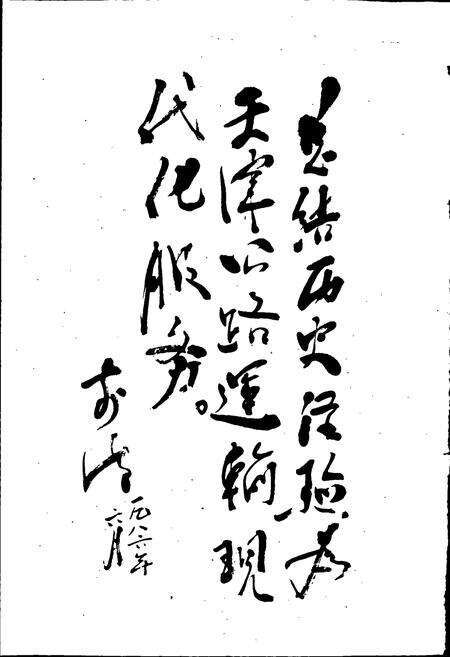 总结历史经验为
天津公路运输现
代化服务。
李清
一九八六年
六月